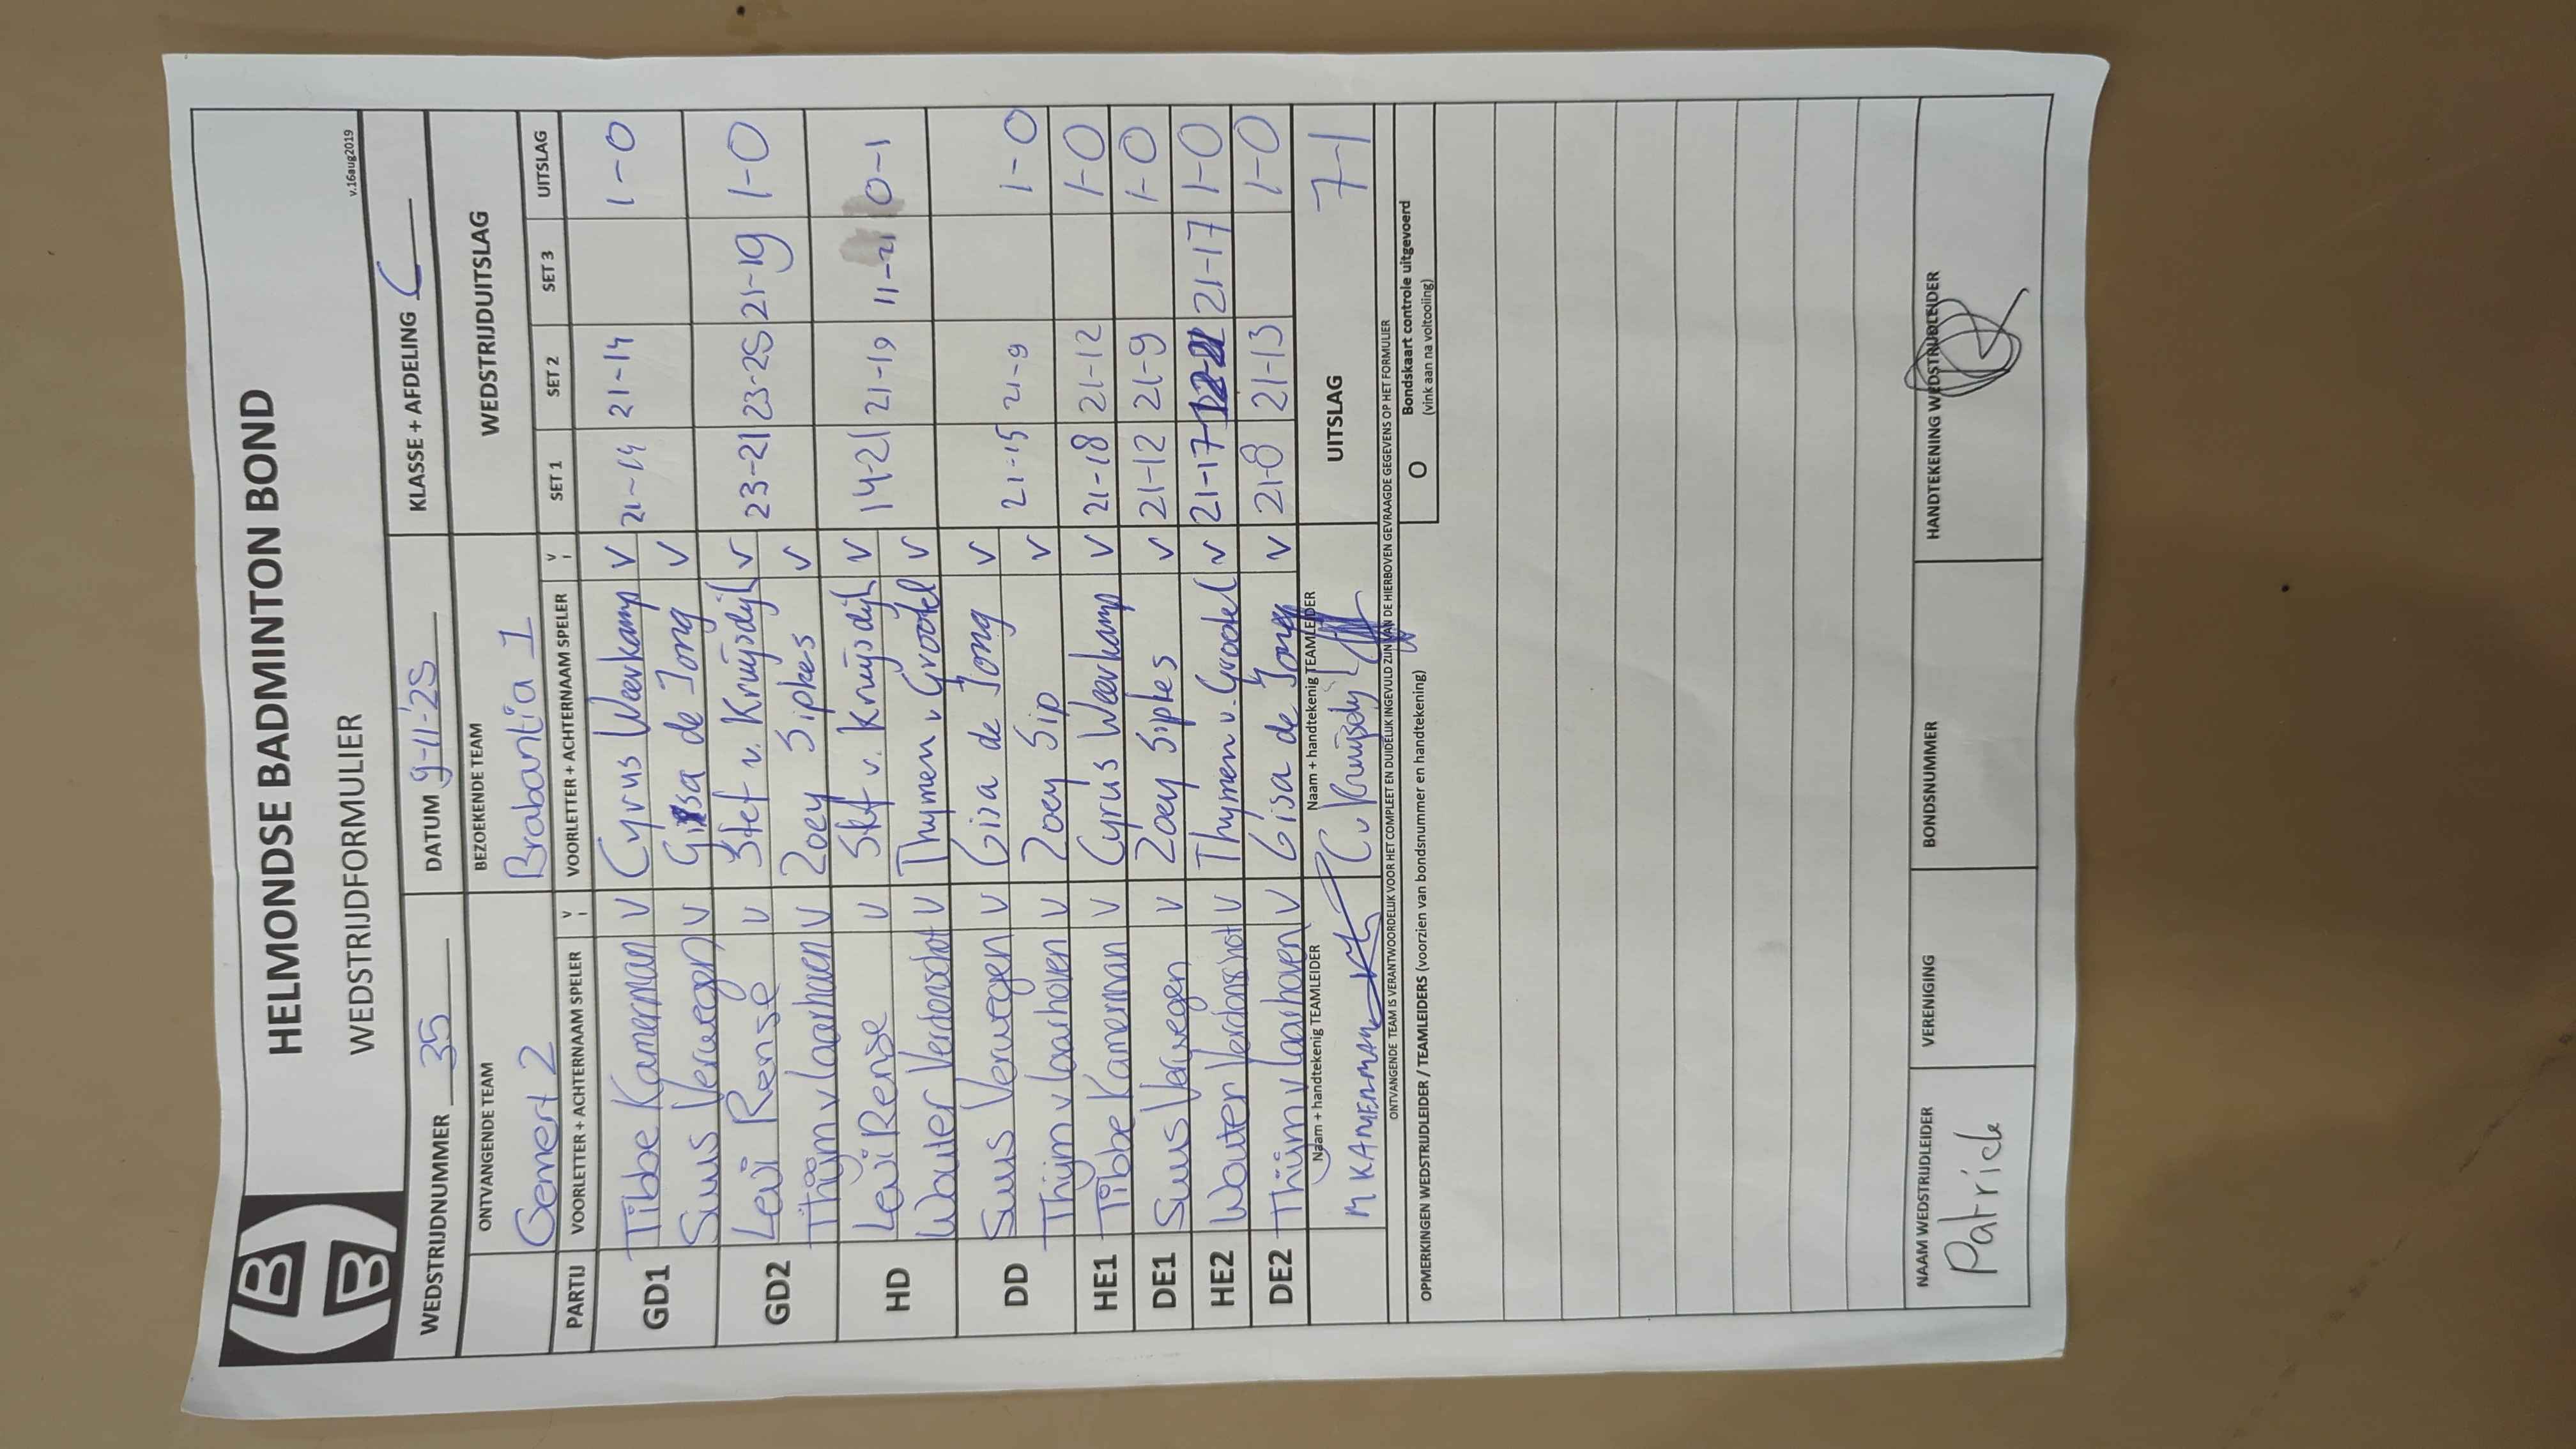 HELMONDSE BADMINTON BOND
WEDSTRIJDFORMULIER
v.16aug2019
WEDSTRIJDNUMMER 35 DATUM 9-11-'25 KLASSE + AFDELING C
ONTVANGENDE TEAM BEZOEKENDE TEAM WEDSTRIJDUITSLAG
Gemert 2 Brabantia 1
PARTIJ VOORLETTER + ACHTERNAAM SPELER V VOORLETTER + ACHTERNAAM SPELER V SET 1 SET 2 SET 3 UITSLAG
GD1 Tibbe Kamerman V Cyrus Weerkamp V 21-14 21-14 1-0
Suus Verwegen V Gisa de Jong V
GD2 Levi Rense V Stef v. Kruijsdijk V 23-21 23-25 21-19 1-0
Thijm v Laarhoven V Zoey Sipkes V
HD Levi Rense V Stef v. Kruijsdijk V 14-21 21-19 11-21 0-1
Wouter Verdonschot V Thymen v Grootel V
DD Suus Verwegen V Gisa de Jong V 21-15 21-9 1-0
Thijm v Laarhoven V Zoey Sip V
HE1 Tibbe Kamerman V Cyrus Weerkamp V 21-18 21-12 1-0
DE1 Suus Verwegen V Zoey Sipkes V 21-12 21-9 1-0
HE2 Wouter Verdonschot V Thymen v. Grootel V 21-17 21-17 1-0
DE2 Thijm v Laarhoven V Gisa de Jong V 21-8 21-13 1-0
Naam + handtekenig TEAMLEIDER Naam + handtekenig TEAMLEIDER UITSLAG 7-1
M KAMERMAN C v Kruijsdijk
ONTVANGENDE TEAM IS VERANTWOORDELIJK VOOR HET COMPLEET EN DUIDELIJK INGEVULD ZIJN VAN DE HIERBOVEN GEVRAAGDE GEGEVENS OP HET FORMULIER
O Bondskaart controle uitgevoerd
(vink aan na voltooiing)
OPMERKINGEN WEDSTRIJDLEIDER / TEAMLEIDERS (voorzien van bondsnummer en handtekening)
NAAM WEDSTRIJDLEIDER VERENIGING BONDSNUMMER HANDTEKENING WEDSTRIJDLEIDER
Patrick